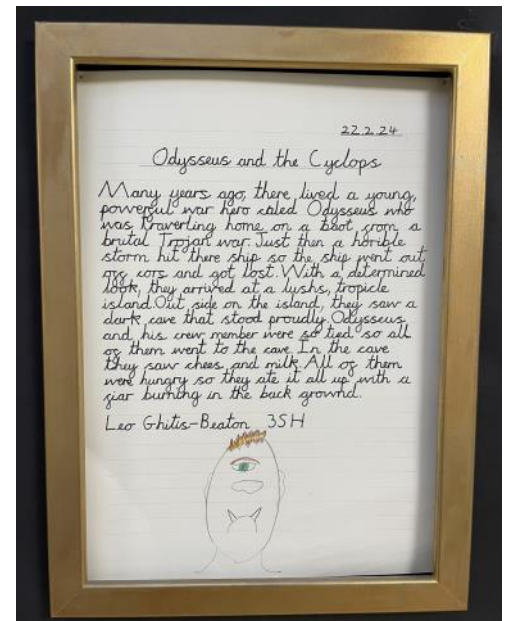 22.2.24
Odysseus and the Cyclops
Many years ago, there lived a young,
powerful war hero called Odysseus who
was traverling home on a boat from a
brutal Trojan war. Just then a horible
storm hit there ship so the ship went out
off cors and got lost. With a determined
look, they arrived at a lushs, tropicle
island. Out side on the island, they saw a
dark cave that stood proudly. Odysseus
and his crew member were so tied so all
of them went to the cave. In the cave
they saw chees and milk. All of them
were hungry so they ate it all up with a
fiar burning in the back grownd.
Leo Ghitis-Beaton 3SH